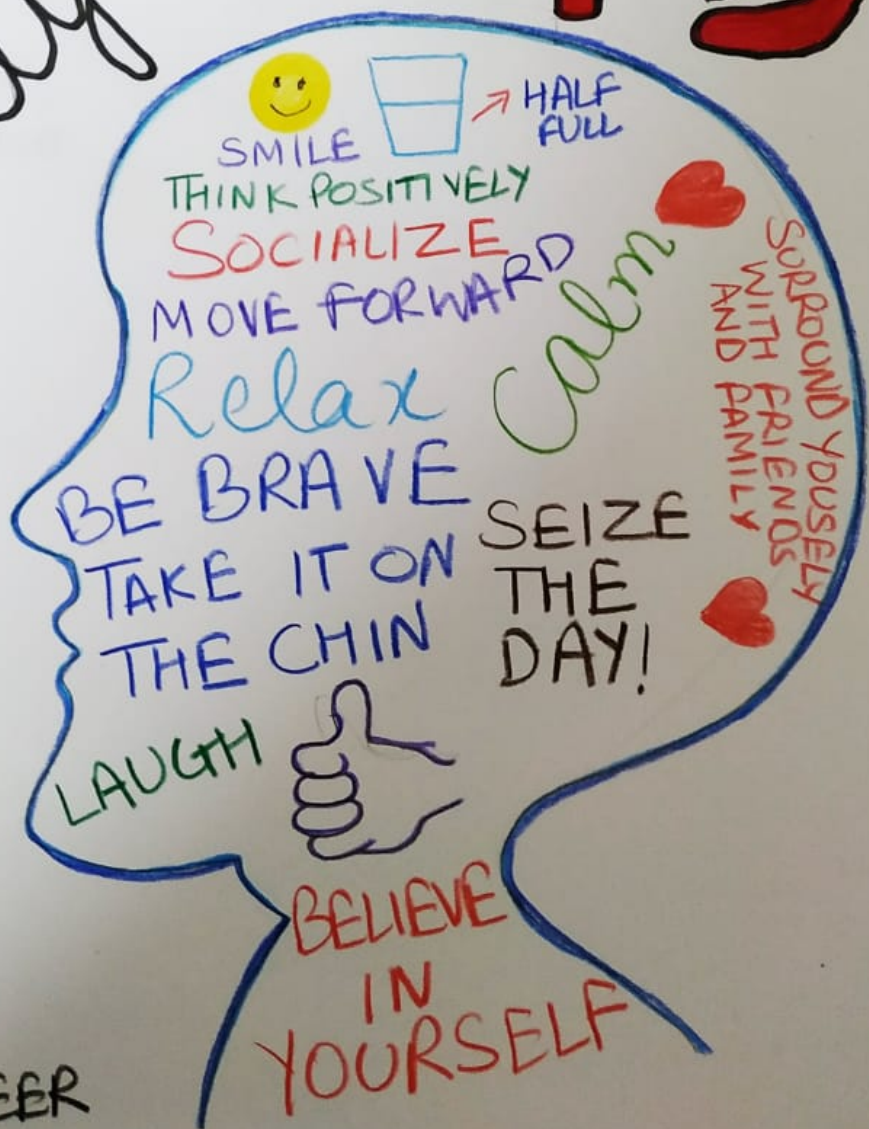 HALF
FULL
SMILE
THINK POSITIVELY
SOCIALIZE
MOVE FORWARD
Calm
Relax
SURROUND YOUSELY
WITH FRIENDS
AND FAMILY
BE BRAVE
TAKE IT ON
THE CHIN
SEIZE
THE
DAY!
LAUGH
BELIEVE
IN
YOURSELF
EER